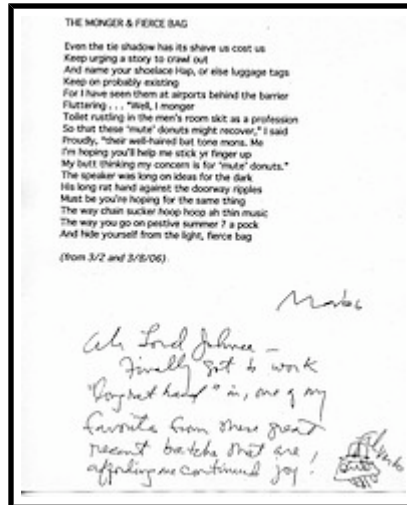 THE MONGER & FIERCE BAG
Even the tie shadow has its shave us cost us
Keep urging a story to crawl out
And name your shoelace Hap, or else luggage tags
Keep on probably existing
For I have seen them at airports behind the barrier
Fluttering . . . "Well, I monger
Toilet rustling in the men's room skit as a profession
So that these 'mute' donuts might recover," I said
Proudly, "their well-haired bat tone mons. Me
I'm hoping you'll help me stick yr finger up
My butt thinking my concern is for 'mute' donuts."
The speaker was long on ideas for the dark
His long rat hand against the doorway ripples
Must be you're hoping for the same thing
The way chain sucker hoop hoop ah thin music
The way you go on pestive summer 7 a pock
And hide yourself from the light, fierce bag
(from 3/2 and 3/8/06)
Lord
Finally got to work
"long rat hand" in, one of my
favorites from these great
recent batches that are
affording me continued joy!